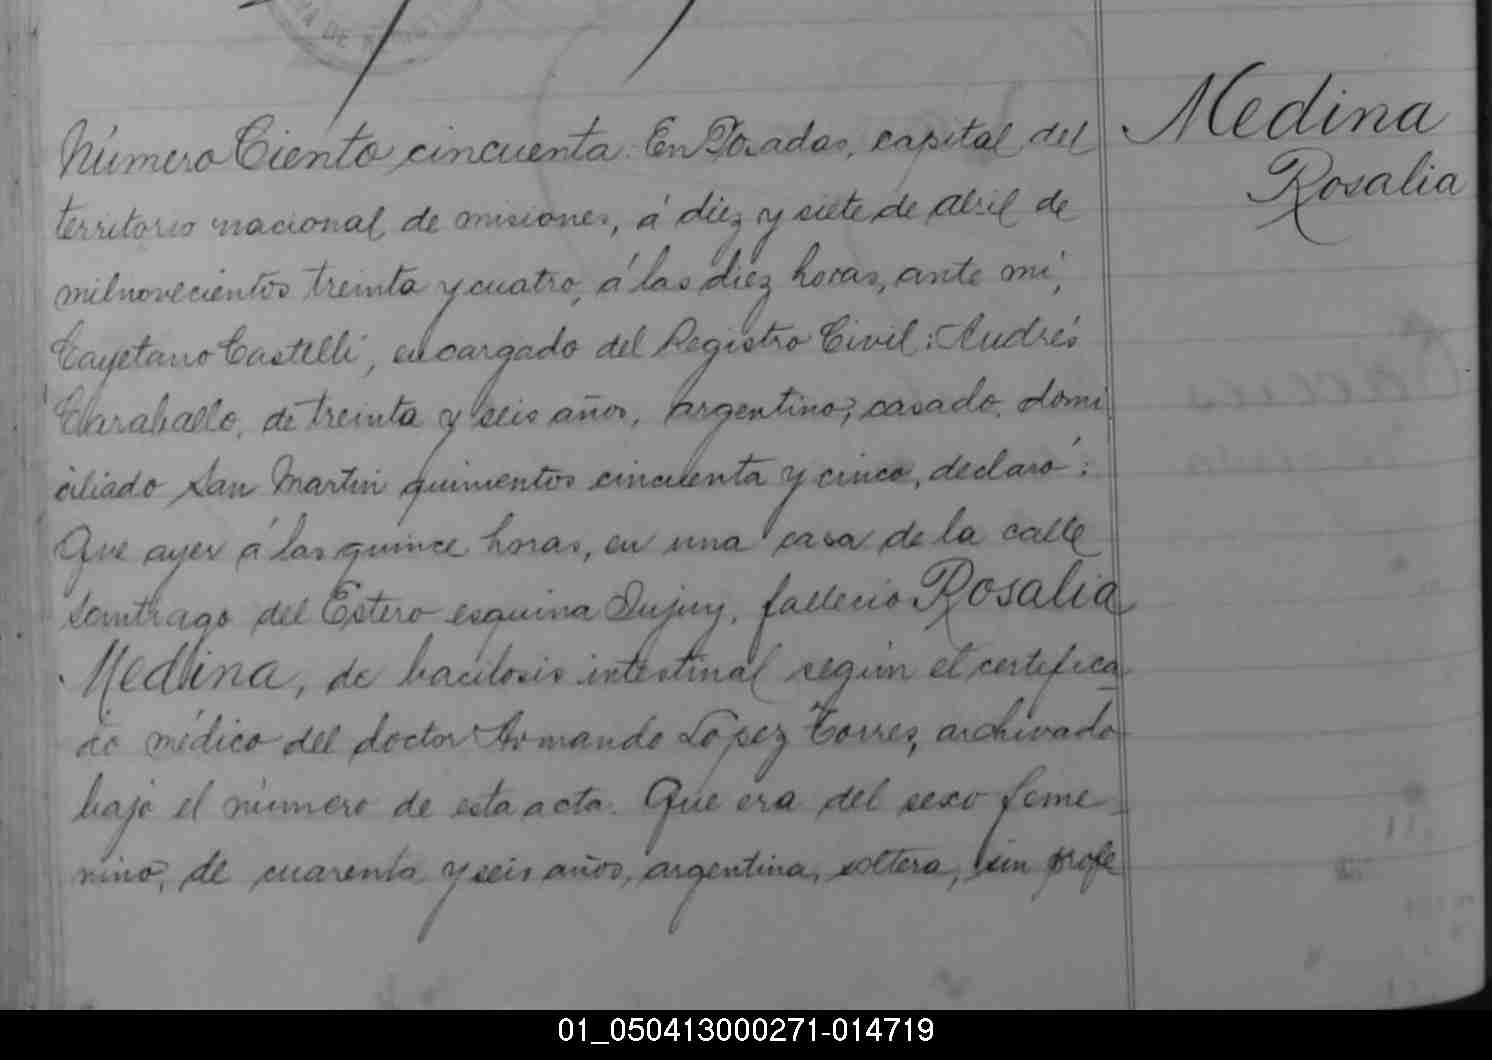 Número Ciento cincuenta. En Posadas, capital del
Medina
Rosalia
territorio nacional de misiones, á diez y siete de abril de
milnovecientos treinta y cuatro, á las diez horas, ante mí,
Cayetano Castelli, encargado del Registro Civil: Andrés
Caraballo, de treinta y seis años, argentino, casado, domi
ciliado San Martin quinientos cincuenta y cinco, declaró:
Que ayer á las quince horas, en una casa de la calle
Santiago del Estero esquina Jujuy, falleció Rosalia
Medina, de bacilosis intestinal según el certifica
do médico del doctor Armando López Torres, archivado
bajo el número de esta acta. Que era del sexo feme_
nino, de cuarenta y seis años, argentina, soltera, sin profe
01_050413000271-014719